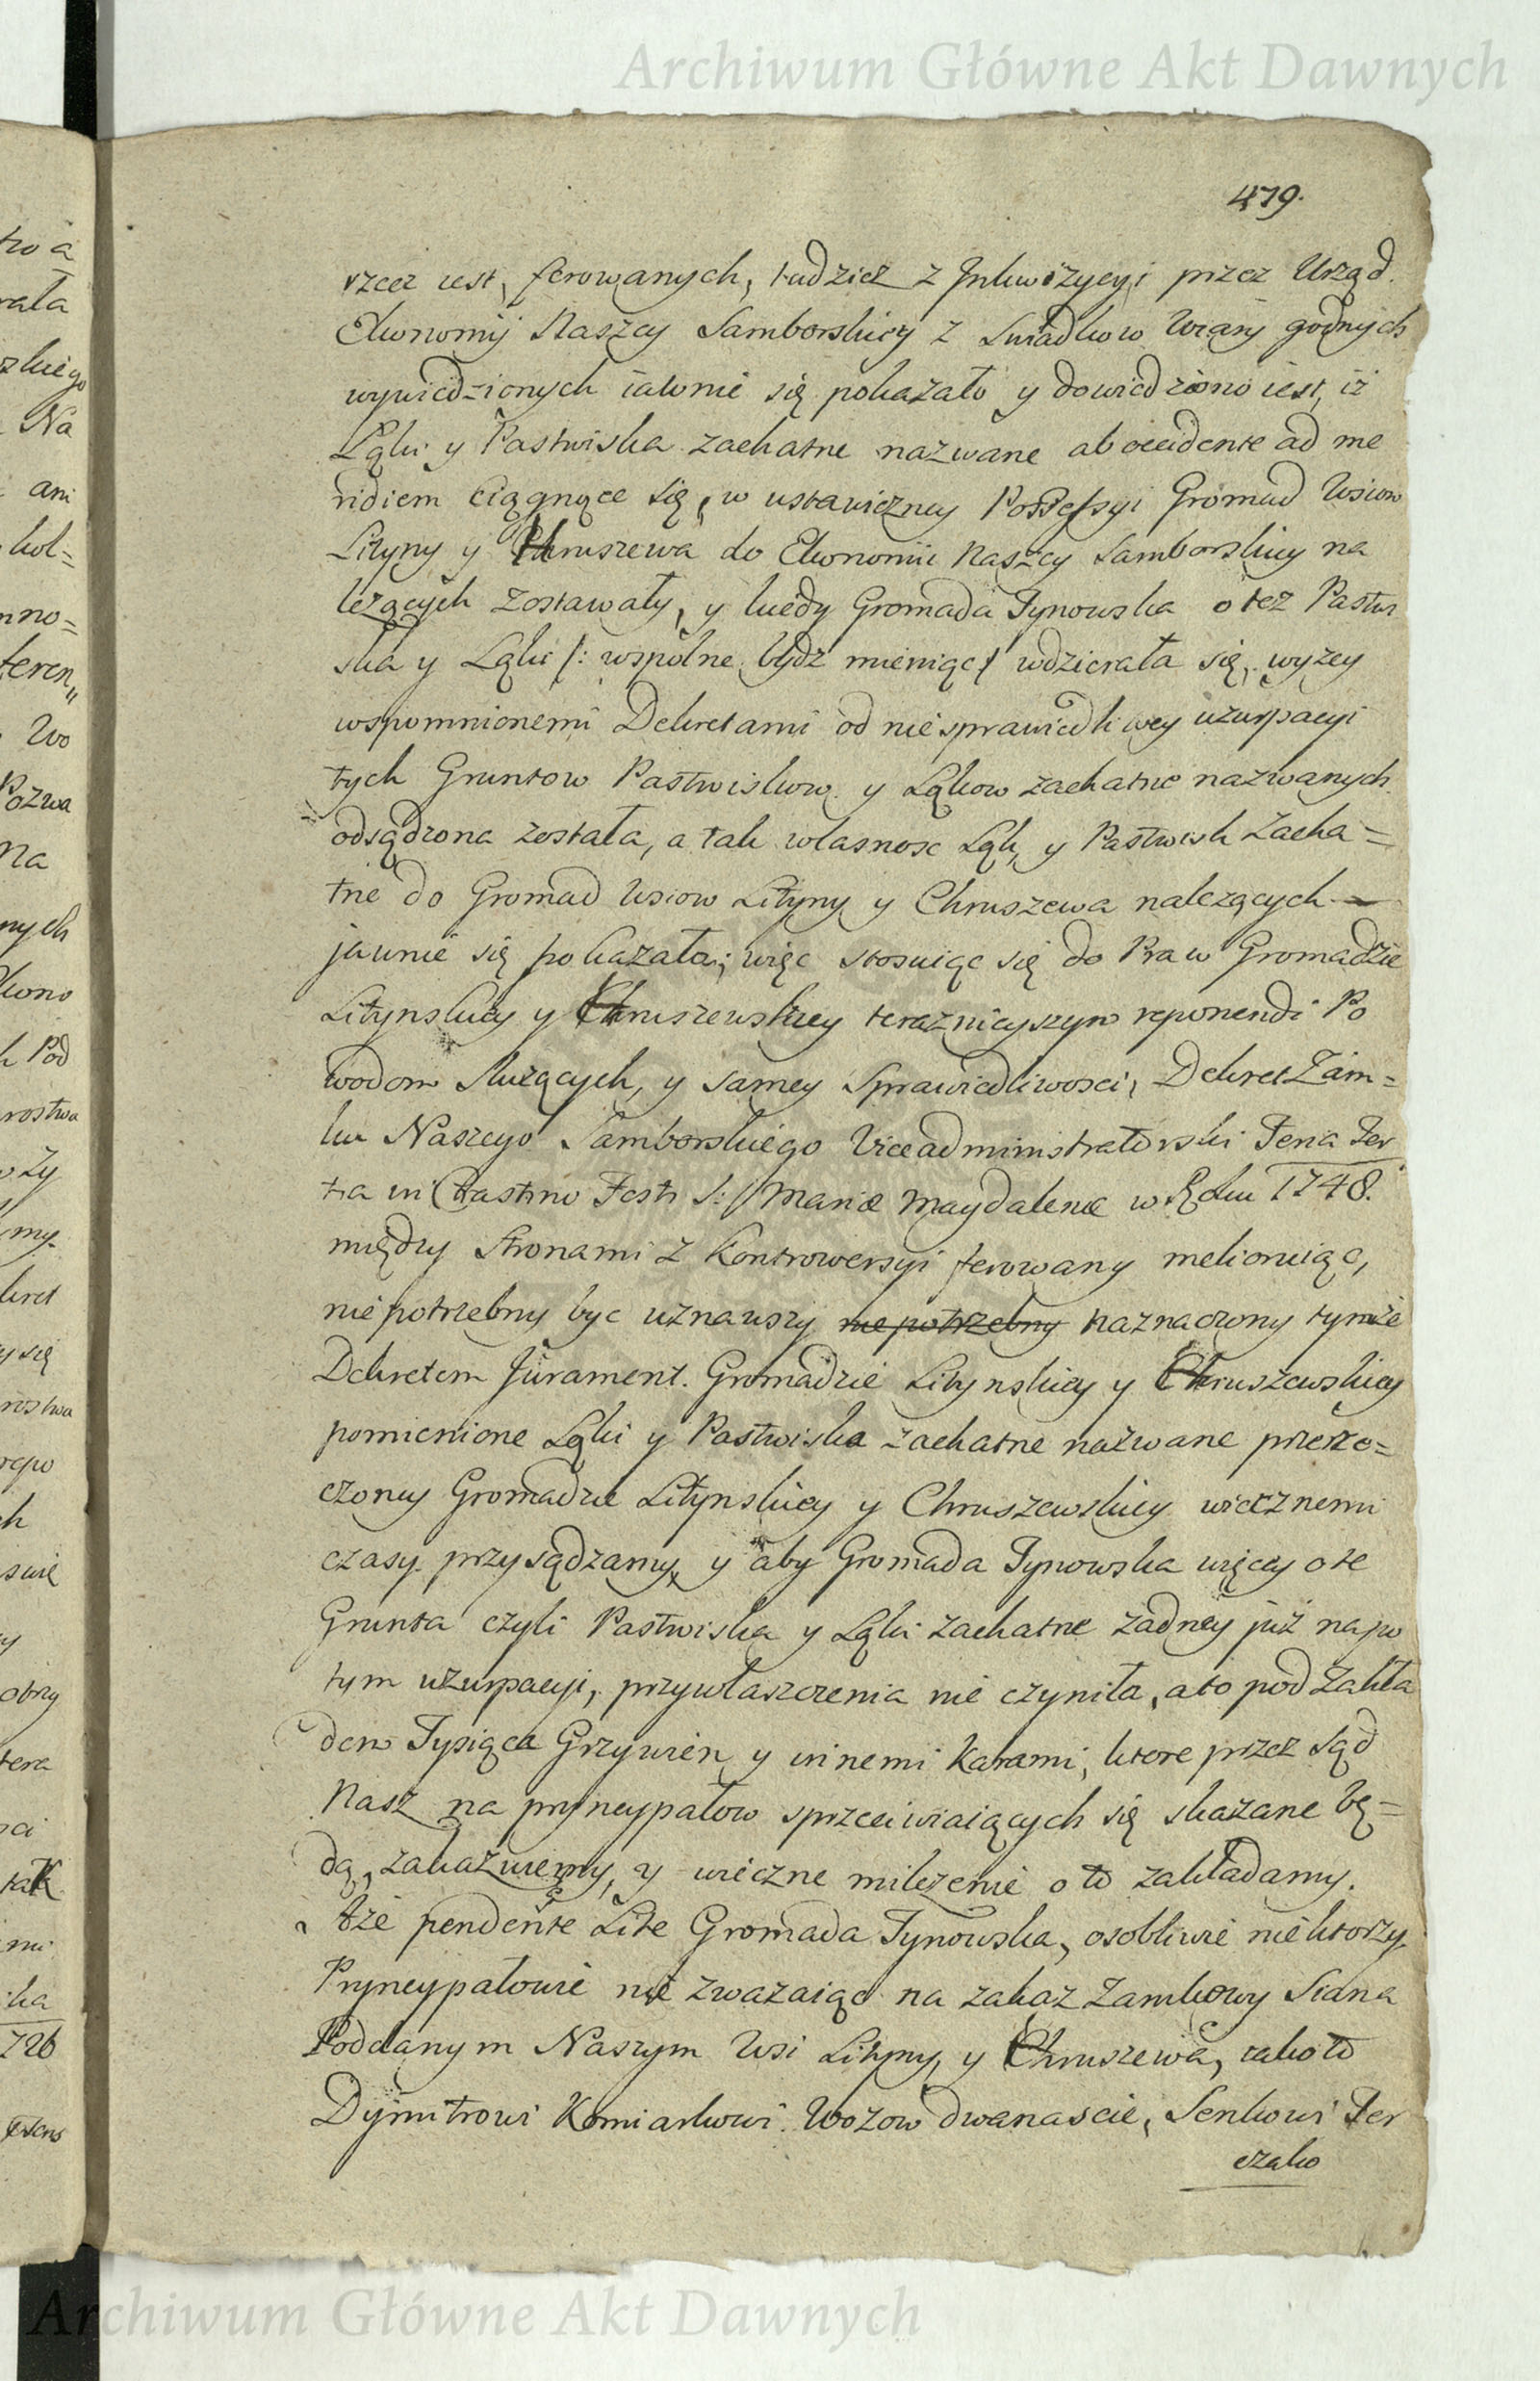 Archiwum Główne Akt Dawnych
479.
rzecz iest, ferowanych, tudziez z Jnkwizycyi przez Urząd
Ekonomij Naszey Samborskiey z Swiadkow Wiary godnych
wywiedzionych iawnie się pokazało y dowiedziono iest, iż
Łąki y Pastwiska zachatne nazwane ab occidente ad me
ridiem ciągnące się, w ustawiczney Possessyi Gromad Wsiow
Lityny y Chruszewa do Ekonomii Naszey Samborskiey na
leżących zostawały, y kiedy Gromada Tynowska o też Pastwi
ska y Łąki /: wspolne bydz mieniąc / wdzierała się, wyżey
wspomnionemi Dekretami od niesprawiedliwey uzurpacyi
tych Gruntow Pastwiskow y Łąkow zachatne nazwanych
odsądzona została, a tak własnosc Łąk, y Pastwisk Zacha=
tne do Gromad Wsiow Lityny y Chruszewa należących
jawnie się pokazała; więc stosuiąc się do Praw Gromadzie
Lityńskiey y Chruszewskiey teraznieyszym reponendi Po
wodom służących, y samey Sprawiedliwosci, Dekret Zam=
ku Naszego Samborskiego Viceadministratorski Feria Ter
tia in Crastino Festi S: Mariæ Magdalenæ w Roku 1748.
między Stronami z Kontrowersyi ferowany melioruiąc,
niepotrzebny byc uznawszy niepotrzebny naznaczony tymże
Dekretem Jurament. Gromadzie Lityńskiey y Chruszewskiey
pomienione Łąki y Pastwiska zachatne nazwane przerze=
czoney Gromadzie Lityńskiey y Chruszewskiey wiecznemi
czasy przysądzamy, y aby Gromada Tynowska więcey o te
Grunta czyli Pastwiska y Łąki zachatne żadney już napo
tym uzurpacyi, przywłaszczenia nie czyniła, a to pod Zakła
dem Tysiąca Grzywien, y innemi Karami, ktore przez Sąd
Nasz na pryncypałow sprzeciwiaiących się skazane bę=
dą, zakazuiemy, y wieczne milczenie o to zakładamy.
Aże pendente Lite Gromada Tynowska, osobliwie niektorzy
Pryncypałowie nie zważaiąc na zakaz Zamkowy Siana
Poddanym Naszym Wsi Lityny, y Chruszewa, iako to
Dymitrowi Komiarkowi Wozow dwanascie, Senkowi Fer
czako
Archiwum Główne Akt Dawnych